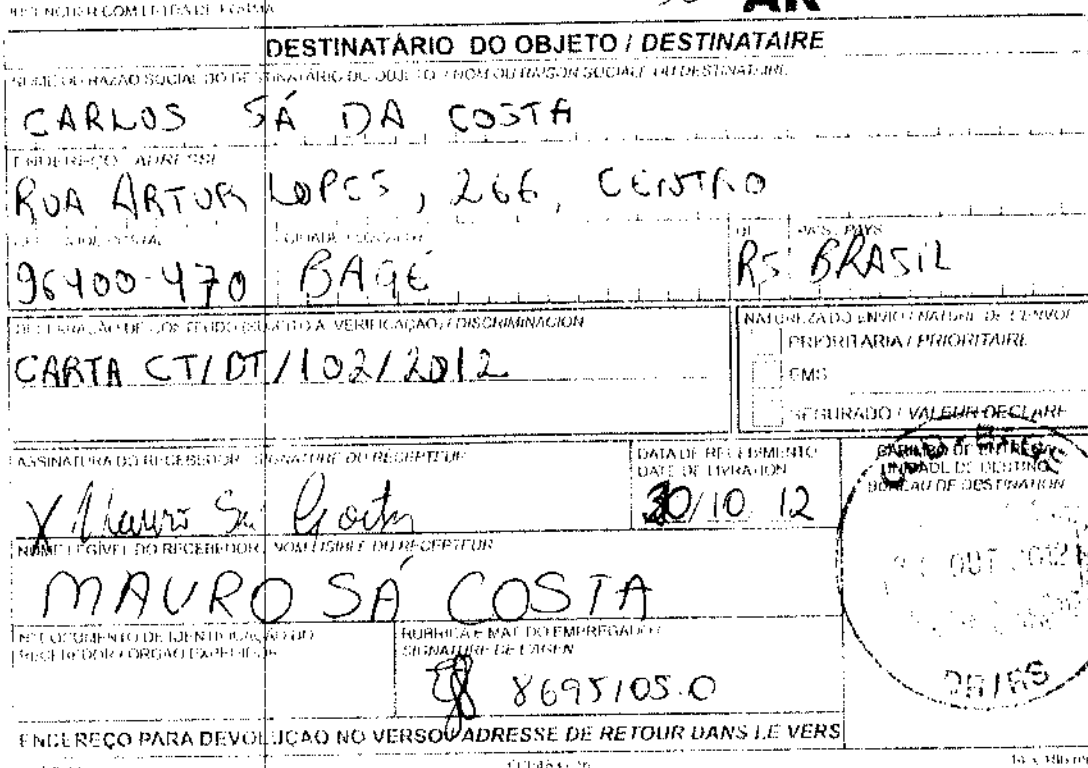 AR
DESTINATÁRIO DO OBJETO / DESTINATAIRE
NOME OU RAZÃO SOCIAL DO DESTINATÁRIO DO OBJETO / NOM OU RAISON SOCIALE DU DESTINATAIRE
CARLOS SÁ DA COSTA
ENDEREÇO / ADRESSE
RUA ARTUR LOPES, 266, CENTRO
UF PAÍS / PAYS
96400-470 BAGÉ RS BRASIL
DECLARAÇÃO DE CONTEÚDO (SUJEITO À VERIFICAÇÃO) / DISCRIMINACION
NATUREZA DO ENVIO / NATURE DE L'ENVOI
PRIORITÁRIA / PRIORITAIRE
CARTA CT/DT/102/2012
EMS
SEGURADO / VALEUR DÉCLARÉ
ASSINATURA DO RECEBEDOR / SIGNATURE DU RÉCEPTEUR
DATA DE RECEBIMENTO
DATE DE LIVRATION
CARIMBO DE ENTREGA
UNIDADE DE DESTINO
BUREAU DE DESTINATION
X Mauro Sá Costa
30/10 12
NOME LEGÍVEL DO RECEBEDOR / NOM LISIBLE DU RÉCEPTEUR
MAURO SÁ COSTA
OUT 2012
Nº DOCUMENTO DE IDENTIFICAÇÃO DO
RECEBEDOR / ÓRGÃO EXPEDIDOR
RUBRICA E MAT. DO EMPREGADO /
SIGNATURE DE L'AGENT
8695105.0
ENDEREÇO PARA DEVOLUÇÃO NO VERSO / ADRESSE DE RETOUR DANS LE VERS